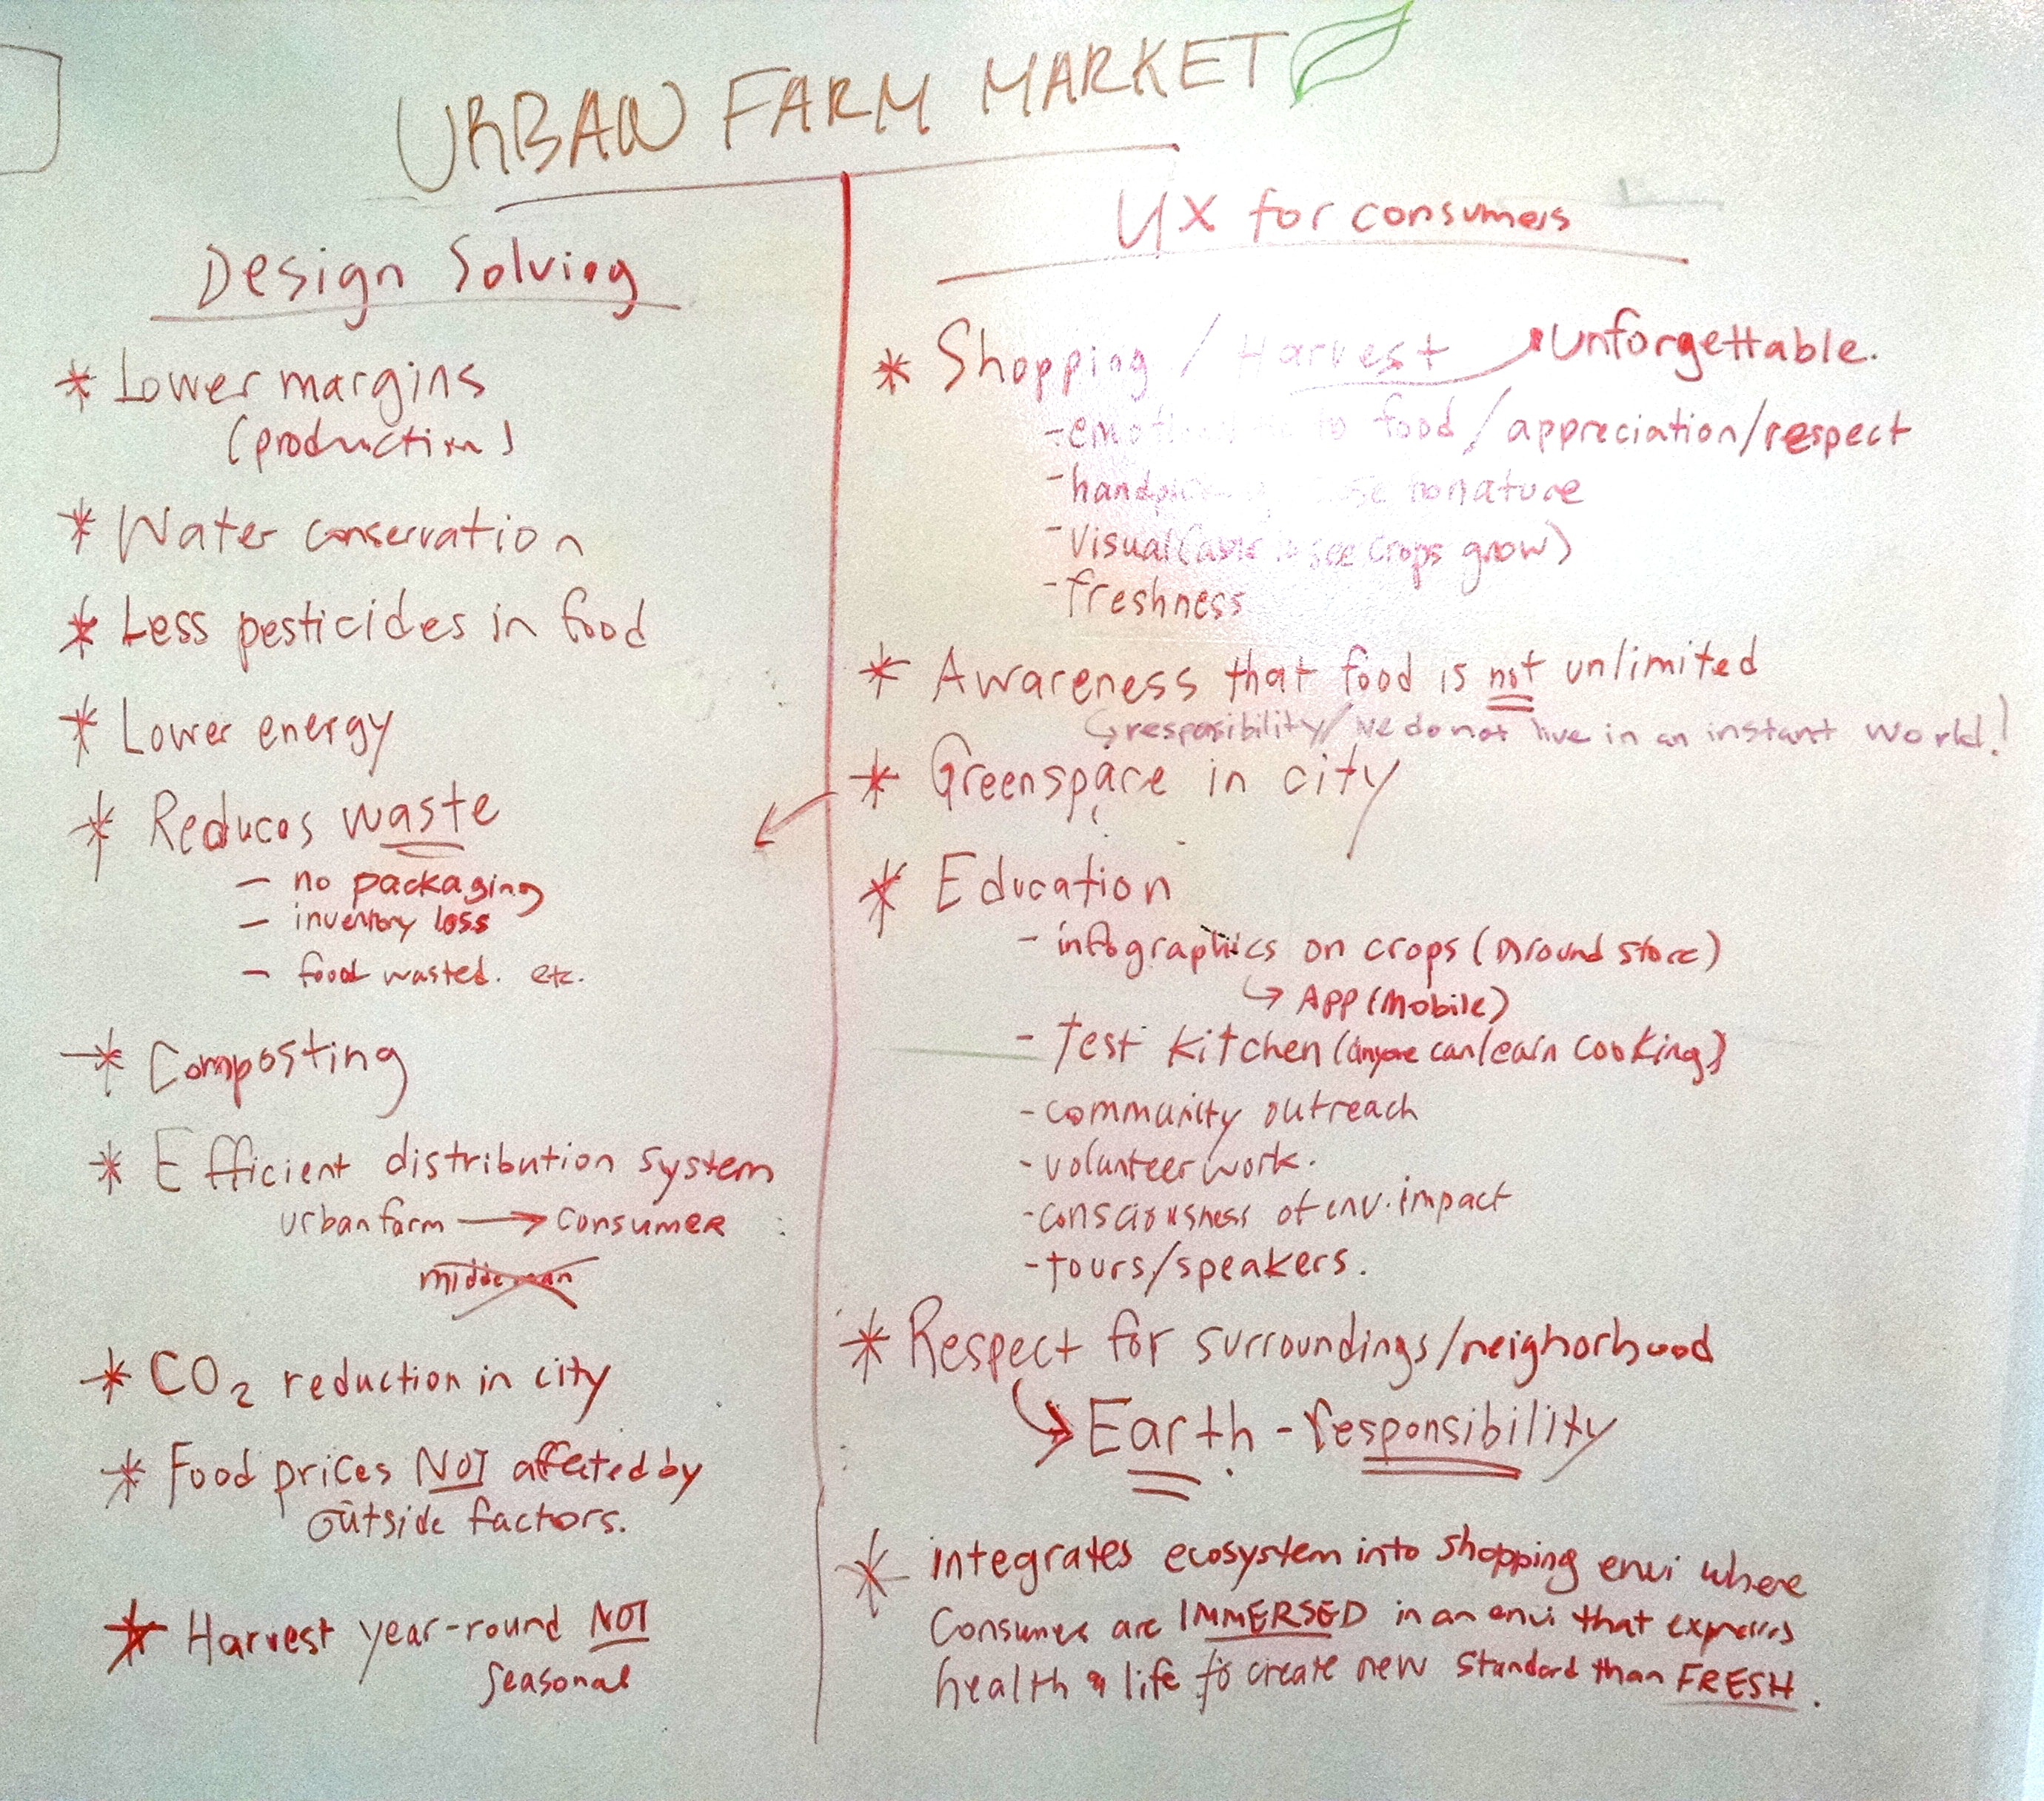 URBAN FARM MARKET
Design Solving
* Lower margins
(production)
* Water conservation
* Less pesticides in food
* Lower energy
* Reduces waste
- no packaging
- inventory loss
- food wasted. etc.
* Composting
* Efficient distribution system
urban farm → consumer
middleman
* CO2 reduction in city
* Food prices NOT affected by
outside factors.
* Harvest year-round NOT
seasonal
UX for consumers
* Shopping / Harvest → Unforgettable.
- to food / appreciation/respect
- nature
- visual (able to see crops grow)
- freshness
* Awareness that food is not unlimited
↳ responsibility/ we do not live in an instant world!
* Greenspace in city
* Education
- infographics on crops (around store)
↳ App (mobile)
- Test kitchen (anyone can learn cooking)
- community outreach
- volunteer work.
- consciousness of env. impact
- tours/speakers.
* Respect for surroundings/neighorhood
↳ Earth - responsibility
* integrates ecosystem into shopping envi where
consumers are IMMERSED in an envi that expresses
health & life to create new standard than FRESH.